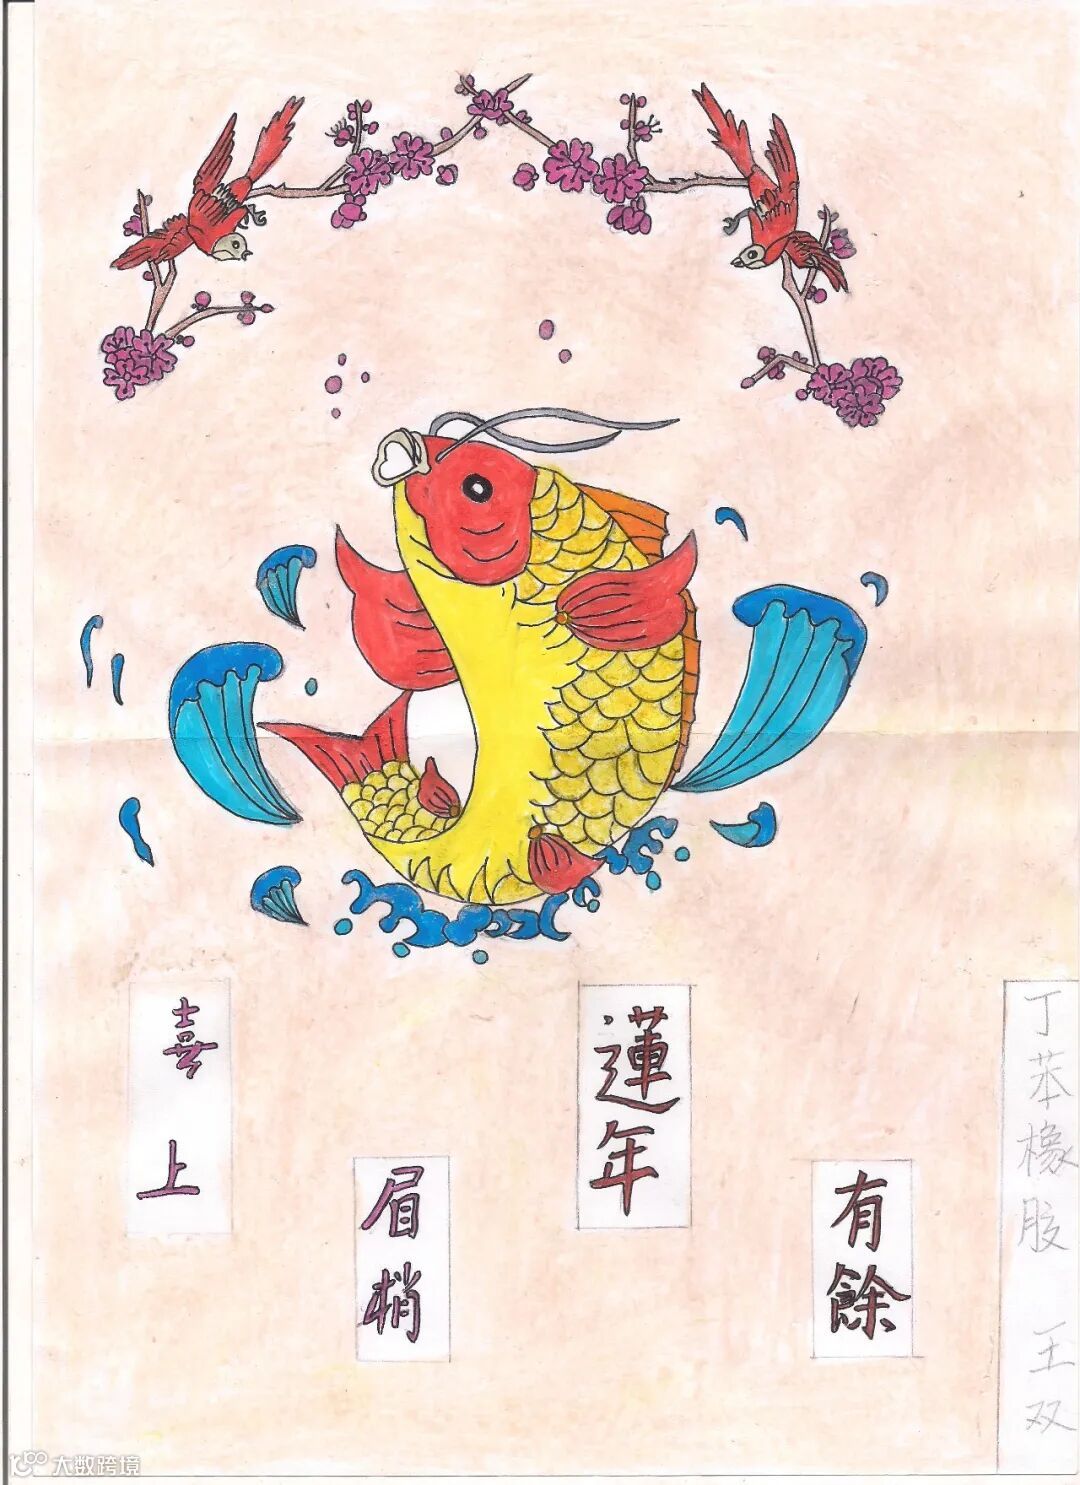 喜上
眉梢
蓮年
有餘
丁苯橡胶 王双
大数跨境